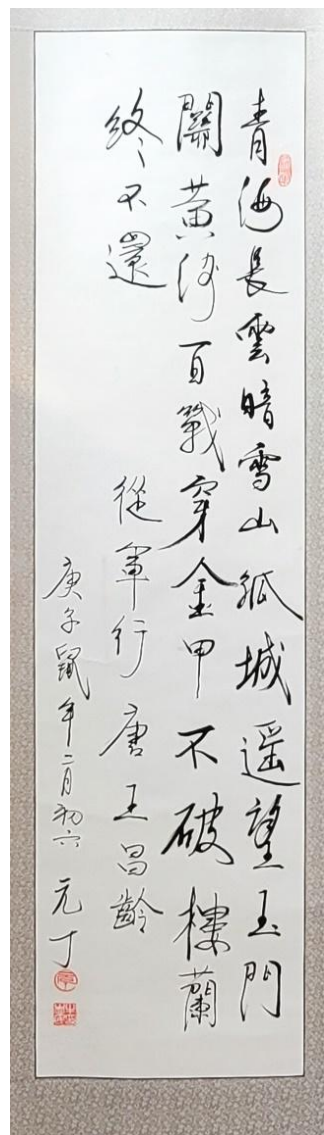 青海長雲暗雪山孤城遥望玉門
關黄沙百戰穿金甲不破樓蘭
終不還
從軍行 唐 王昌齡
庚子鼠年二月初六 元丁